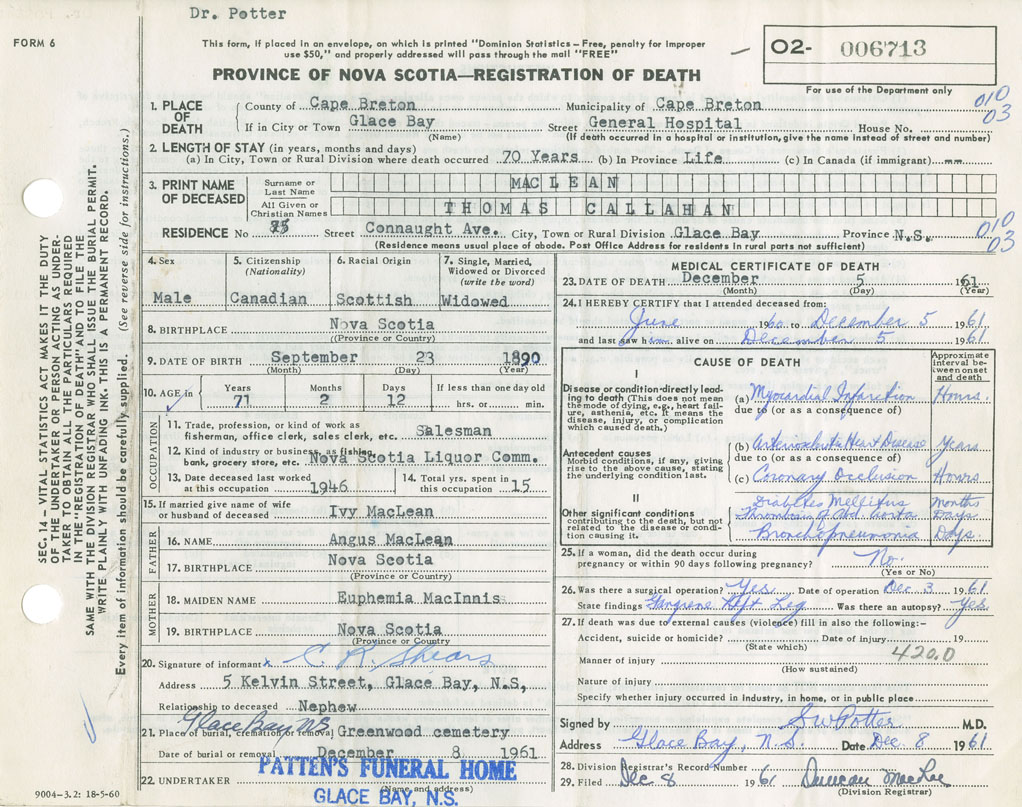 Dr. Potter
FORM 6
This form, if placed in an envelope, on which is printed "Dominion Statistics – Free, penalty for improper
use $50," and properly addressed will pass through the mail "FREE"
O2- 006713
For use of the Department only
PROVINCE OF NOVA SCOTIA—REGISTRATION OF DEATH
1. PLACE OF DEATH
County of Cape Breton Municipality of Cape Breton 010
If in City or Town Glace Bay Street General Hospital House No. 03
(Name) (If death occurred in a hospital or institution, give the name instead of street and number)
2. LENGTH OF STAY (in years, months and days)
(a) In City, Town or Rural Division where death occurred 70 Years (b) In Province Life (c) In Canada (if immigrant) --
3. PRINT NAME OF DECEASED
Surname or Last Name MACLEAN
All Given or Christian Names THOMAS CALLAHAN
RESIDENCE No Street Connaught Ave. City, Town or Rural Division Glace Bay Province N.S. 010
03
(Residence means usual place of abode. Post Office Address for residents in rural parts not sufficient)
4. Sex
Male
5. Citizenship
(Nationality)
Canadian
6. Racial Origin
Scottish
7. Single, Married,
Widowed or Divorced
(write the word)
Widowed
8. BIRTHPLACE Nova Scotia
((Province or Country)
9. DATE OF BIRTH September 23 1890
(Month) (Day) (Year)
10. AGE in
Years Months Days If less than one day old
71 2 12 hrs. or min.
OCCUPATION
11. Trade, profession, or kind of work as
fisherman, office clerk, sales clerk, etc. Salesman
12. Kind of industry or business, as fishing,
bank, grocery store, etc. Nova Scotia Liquor Comm.
13. Date deceased last worked
at this occupation 1946
14. Total yrs. spent in
this occupation 15
15. If married give name of wife
or husband of deceased Ivy MacLean
FATHER
16. NAME Angus MacLean
17. BIRTHPLACE Nova Scotia
(Province or Country)
MOTHER
18. MAIDEN NAME Euphemia MacInnis
19. BIRTHPLACE Nova Scotia
(Province or Country)
20. Signature of informant x C. R. Shears
Address 5 Kelvin Street, Glace Bay, N.S,
Relationship to deceased Nephew
Glace Bay N.S.
21. Place of burial, cremation or removal Greenwood cemetery
Date of burial or removal December 8 1961
22. UNDERTAKER PATTEN'S FUNERAL HOME
(Name and address)
GLACE BAY, N.S.
MEDICAL CERTIFICATE OF DEATH
23. DATE OF DEATH December 5 1961
(Month) (Day) (Year)
24. I HEREBY CERTIFY that I attended deceased from:
June 1960 to December 5 1961
and last saw h alive on December 5 1961
CAUSE OF DEATH
Approximate
interval be-
tween onset
and death
I
Disease or condition directly lead-
ing to death (This does not mean
the mode of dying, e.g., heart fail-
ure, asthenia, etc. It means the
disease, injury, or complication
which caused death.)
(a) Myocardial Infarction Hours
due to (or as a consequence of)
Antecedent causes
Morbid conditions, if any, giving
rise to the above cause, stating
the underlying condition last.
(b) Arteriosclerotic Heart Disease Years
due to (or as a consequence of)
(c) Coronary Occlusion Hours
II
Other significant conditions
contributing to the death, but not
related to the disease or condi-
tion causing it.
Diabetes Mellitus Months
Thrombosis of Abd. Aorta Days
Bronchopneumonia Days
25. If a woman, did the death occur during
pregnancy or within 90 days following pregnancy? No.
(Yes or No)
26. Was there a surgical operation? Yes Date of operation Dec 3 1961
State findings Gangrene Left Leg Was there an autopsy? Yes
27. If death was due to external causes (violence) fill in also the following:-
Accident, suicide or homicide? Date of injury 19
(State which) 420.0
Manner of injury
(How sustained)
Nature of injury
Specify whether injury occurred in industry, in home, or in public place
Signed by S W Potter M.D.
Address Glace Bay, N.S. Date Dec 8 1961
28. Division Registrar's Record Number
29. Filed Dec 8 1961 Duncan MacRae
(Division Registrar)
SEC. 14 – VITAL STATISTICS ACT MAKES IT THE DUTY
OF THE UNDERTAKER OR PERSON ACTING AS UNDER-
TAKER TO OBTAIN ALL THE PARTICULARS REQUIRED
IN THE "REGISTRATION OF DEATH" AND TO FILE THE
SAME WITH THE DIVISION REGISTRAR WHO SHALL ISSUE THE BURIAL PERMIT.
WRITE PLAINLY WITH UNFADING INK. THIS IS A PERMANENT RECORD.
Every item of information should be carefully supplied. (See reverse side for instructions.)
9004–3.2: 18-5-60